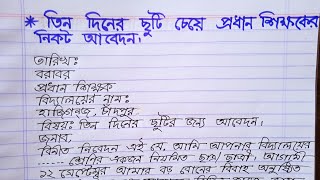 * তিন দিনের ছুটি চেয়ে প্রধান শিক্ষকের
নিকট আবেদন।
তারিখঃ
বরাবর
প্রধান শিক্ষক
বিদ্যালয়ের নামঃ
হাজিগঞ্জ, চাঁদপুর
বিষয়ঃ তিন দিনের ছুটির জন্য আবেদন।
জনাব,
বিনীত নিবেদন এই যে, আমি আপনার বিদ্যালয়ের
------ শ্রেণির একজন নিয়মিত ছাত্র/ছাত্রী। আগামী
১২ সেপ্টেম্বর আমার বড় বোনের বিবাহ অনুষ্ঠিত